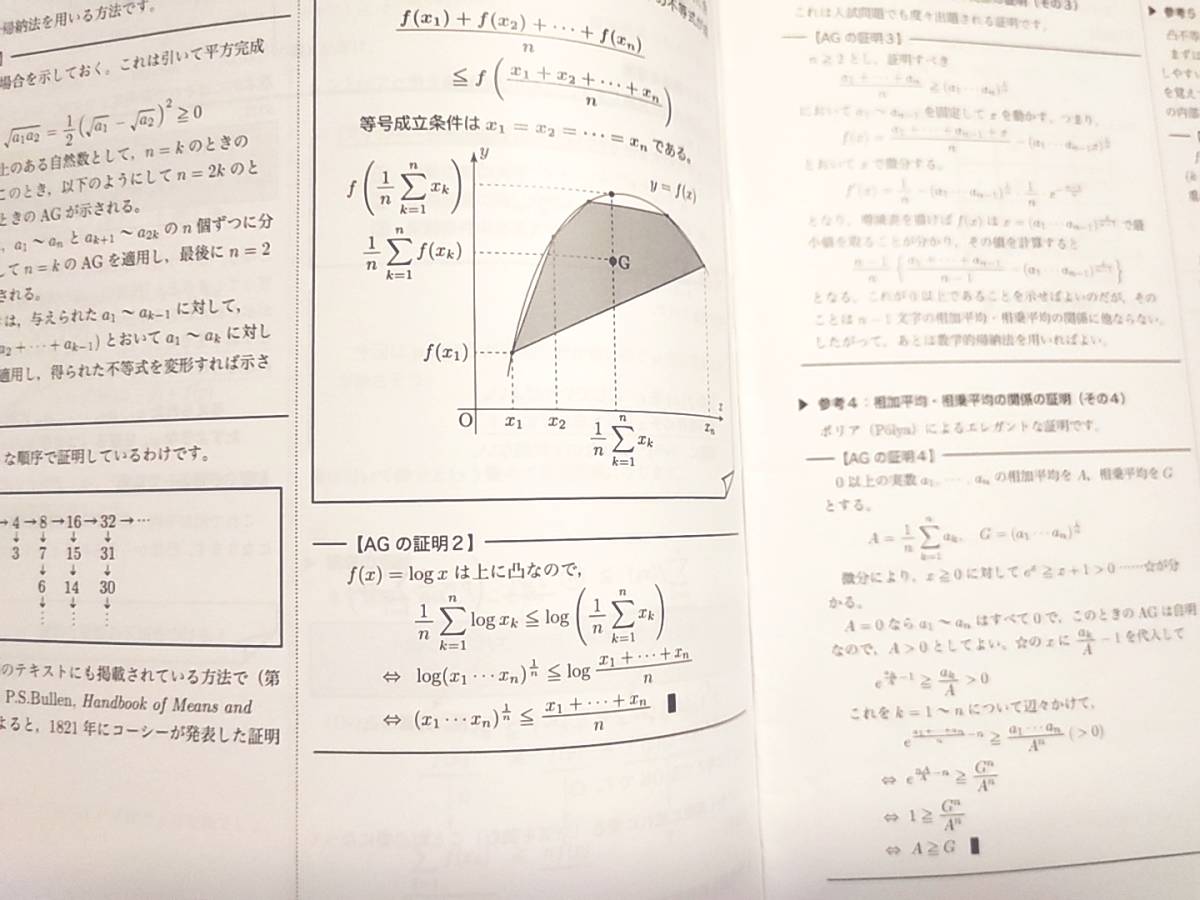 帰納法を用いる方法です。
場合を示しておく。これは引いて平方完成
√a₁a₂ = 1/2(√a₁ − √a₂)² ≧ 0
上のある自然数として，n = k のときの
このとき，以下のようにして n = 2k のと
ときの AG が示される。
，a₁ ～ aₙ と aₖ₊₁ ～ a₂ₖ の n 個ずつに分
して n = k の AG を適用し，最後に n = 2
される。
は，与えられた a₁ ～ aₖ₋₁ に対して，
a₂ + ⋯ + aₖ₋₁) とおいて a₁ ～ aₖ に対し
適用し，得られた不等式を変形すれば示さ
な順序で証明しているわけです。
→ 4 → 8 → 16 → 32 → ⋯
↓ ↓ ↓ ↓
3 7 15 31
↓ ↓ ↓
6 14 30
↓ ↓ ↓
⋮ ⋮ ⋮
のテキストにも掲載されている方法で（第
P.S.Bullen, Handbook of Means and
よると，1821 年にコーシーが発表した証明
の不等式が
(f(x₁) + f(x₂) + ⋯ + f(xₙ))/n
≦ f((x₁ + x₂ + ⋯ + xₙ)/n)
等号成立条件は x₁ = x₂ = ⋯ = xₙ である。
y
f(1/n ∑_{k=1}^{n} xₖ)
y = f(x)
1/n ∑_{k=1}^{n} f(xₖ)
G
f(x₁)
O x₁ x₂ 1/n ∑_{k=1}^{n} xₖ xₙ x
【AG の証明２】
f(x) = log x は上に凸なので，
1/n ∑_{k=1}^{n} log xₖ ≦ log(1/n ∑_{k=1}^{n} xₖ)
⇔ log(x₁ ⋯ xₙ)^{1/n} ≦ log (x₁ + ⋯ + xₙ)/n
⇔ (x₁ ⋯ xₙ)^{1/n} ≦ (x₁ + ⋯ + xₙ)/n ▮
の証明（その３）
これは入試問題でも度々出題される証明です。
【AG の証明３】
n ≧ 2 とし，証明すべき
(a₁ + ⋯ + aₙ)/n ≧ (a₁ ⋯ aₙ)^{1/n}
において a₁ ～ aₙ₋₁ を固定して x を動かす。つまり，
f(x) = (a₁ + ⋯ + aₙ₋₁ + x)/n − (a₁ ⋯ aₙ₋₁x)^{1/n}
とおいて x で微分する。
f′(x) = 1/n − (a₁ ⋯ aₙ₋₁)^{1/n} · 1/n
となり，増減表を書けば f(x) は x = (a₁ ⋯ aₙ₋₁) で最
小値を取ることが分かり，その値を計算すると
(n − 1)/n {(a₁ + ⋯ + aₙ₋₁)/(n − 1) − (a₁ ⋯ aₙ₋₁)}
となる。これが 0 以上であることを示せばよいのだが，その
ことは n − 1 文字の相加平均・相乗平均の関係に他ならない。
したがって，あとは数学的帰納法を用いればよい。
▶ 参考４：相加平均・相乗平均の関係の証明（その４）
ポリア（Pólya）によるエレガントな証明です。
【AG の証明４】
0 以上の実数 a₁, ⋯, aₙ の相加平均を A，相乗平均を G
とする。
A = 1/n ∑_{k=1}^{n} aₖ, G = (a₁ ⋯ aₙ)^{1/n}
微分により，x ≧ 0 に対して eˣ ≧ x + 1 > 0 ……☆が分
かる。
A = 0 なら a₁ ～ aₙ はすべて 0 で，このときの AG は自明
なので，A > 0 としてよい。☆の x に aₖ/A − 1 を代入して
e^{aₖ/A − 1} ≧ aₖ/A > 0
これを k = 1 ～ n について辺々かけて，
e^{(a₁ + ⋯ + aₙ)/A − n} ≧ (a₁ ⋯ aₙ)/Aⁿ (> 0)
⇔ e^{nA/A − n} ≧ Gⁿ/Aⁿ
⇔ 1 ≧ Gⁿ/Aⁿ
⇔ A ≧ G ▮
▶ 参考５
凸不等
まずは
しやすい
を覚え
の内部